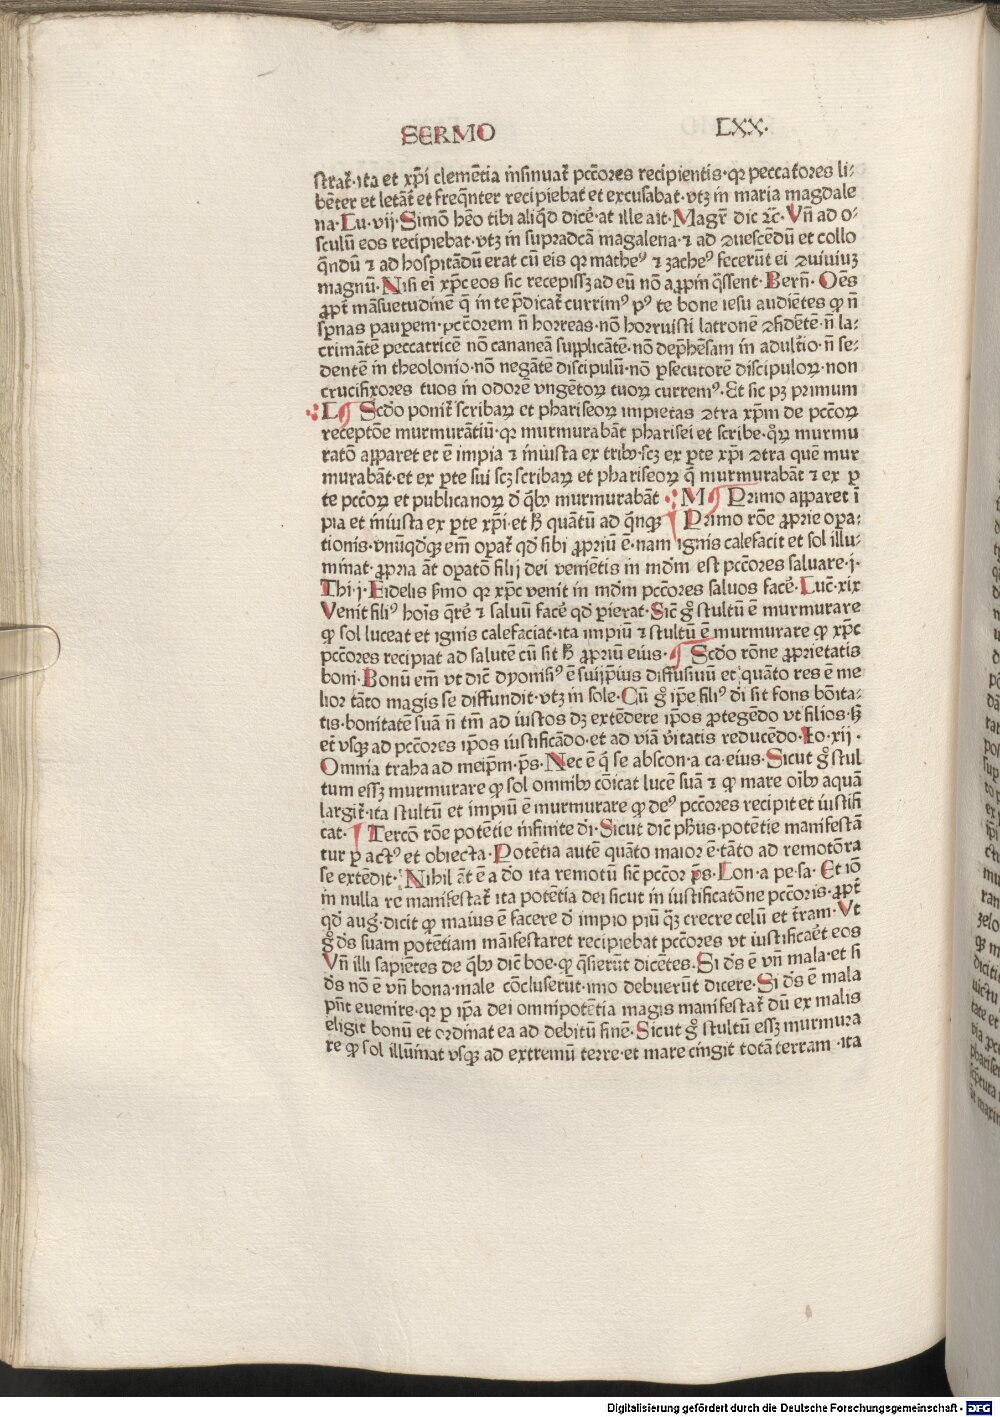 SERMO LXX·
strat᷑·ita et xp̄i clemētia īnsinuat᷑ pctōres recipientis·qr peccatores li⸗
bēter et letāt᷑ et freqn̄ter recipiebat et excusabat·vtꝫ in maria magdale
na·Lu·vij·Simō hēo tibi aliqd̄ dicē·at ille ait·Magr̄ dic ⁊c̄·Vn̄ ad o⸗
sculū eos recipiebat·vtꝫ in supradcā magalena·⁊ ad ꝯuescēdū et collo
qn̄dū ⁊ ad hospitādū erat cū eis qr matheꝰ ⁊ zacheꝰ fecerūt ei ꝯuiuiuꝫ
magnū·Nisi ei xp̄c eos sic recepissꝫ ad eū nō aꝓpin q̄ssent·Bern̄·Oēs
ꝓpt̄ māsuetudinē q̄ in te p̄dicat᷑ currimꝰ pꝰ te bone iesu audiētes ꝙ n̄
sp̄nas paupem·pctōrem n̄ horreas·nō horruisti latronē ꝯfidētē·n̄ la⸗
crimātē peccatricē nō cananeā supplicātē·nō dep̄hēsam in adultīo·n̄ se⸗
dentē in theolonio·nō negātē discipulū·nō ꝑsecutorē discipuloꝝ·non
crucifixores tuos in odorē vngētoꝝ tuoꝝ curremꝰ·Et sic pꝫ primum
L ¶ Scdo ponit᷑ scribaꝝ et phariseoꝝ impietas ꝯtra xp̄m de pctōꝝ
receptōe murmurātiū·qr murmurabāt pharisei et scribe·qͦꝝ murmu
ratō apparet et ē impia ⁊ iniusta ex tribꝰ·scꝫ ex ꝑte xp̄i ꝯtra quē mur
murabāt·et ex ꝑte sui scꝫ scribaꝝ et phariseoꝝ q̄ murmurabāt ⁊ ex ꝑ
te pctōꝝ et publicanoꝝ d̄ q̄bꝰ murmurabāt M ¶ Primo apparet ī
pia et iniusta ex ꝑte xp̄i·et h̄ quātū ad qn̄qꝫ ¶ Primo rōe ꝓprie opa⸗
tionis·vnūqd̄qꝫ em̄ opat᷑ qd̄ sibi ꝓpriū ē·nam ignis calefacit et sol illu⸗
minat·ꝓpria āt opatō filij dei veniētis in mdm̄ est pctōres saluare·j·
Thi·j·Fidelis s̄mo qr xp̄c venit in mdm̄ pctōres saluos facē·Luc̄·xix
Venit filiꝰ hoīs q̄rē ⁊ saluū facē qd̄ ꝑierat·Sic̄ gͦ stultū ē murmurare
ꝙ sol luceat et ignis calefaciat·ita impiū ⁊ stultū ē murmurare ꝙ xp̄c
pctōres recipiat ad salutē cū sit h̄ ꝓpriū eius·¶ Scdo rōne ꝓprietatis
boni·Bonū em̄ vt dic̄ dyonisiꝰ ē suiip̄ius diffusiuū et quāto res ē me
lior tāto magis se diffundit·vtꝫ in sole·Cū gͦ ip̄e filiꝰ di sit fons bōita⸗
tis·bonitatē suā n̄ tm̄ ad iustos dꝫ extēdere ip̄os ꝓtegēdo vt filios·sꝫ
et vsqꝫ ad pctōres ip̄os iustificādo·et ad viā v̄itatis reducēdo·Io·xij·
Omnia traha ad meip̄m·p̄s·Nec ē q̄ se abscon·a ca·eius·Sicut gͦ stul
tum essꝫ murmurare ꝙ sol omnibꝰ cōicat lucē suā ⁊ ꝙ mare oībꝰ aquā
largit᷑·ita stultū et impiū ē murmurare ꝙ deꝰ pctōres recipit et iustifi
cat·¶ Tercō rōe potētie infinite di·Sicut dic̄ ph̄us·potētie manifestā
tur ꝑ actꝰ et obiecta·Potētia autē quāto maior ē·tāto ad remotōra
se extēdit·Nihil āt ē a do ita remotū sic̄ pctōor p̄s·Lon·a pe·sa·Et iō
in nulla re manifestat᷑ ita potētia dei sicut in iustificatōne pctōris·ꝓpt̄
qd̄ aug·dicit ꝙ maius ē facere d̄ impio piū qꝫ crecre celū et t̄ram·Vt
gͦ ds̄ suam potētiam māifestaret recipiebat pctōres vt iustificaēt eos
Vn̄ illi sapiētes de q̄bꝰ dic̄ boe·ꝙ q̄sierūt dicētes·Si ds̄ ē vn̄ mala·et si
ds̄ nō ē vn̄ bona·male cōcluserūt·imo debuerūt dicere·Si ds̄ ē mala
pn̄t euenire·qr ꝑ ip̄a dei omnipotētia magis manifestat᷑ dū ex malis
eligit bonū et ordinat ea ad debitū finē·Sicut gͦ stultū essꝫ murmura
re ꝙ sol illūinat vsqꝫ ad extremū terre·et mare cingit totā terram·ita
Digitalisierung gefördert durch die Deutsche Forschungsgemeinschaft - DFG